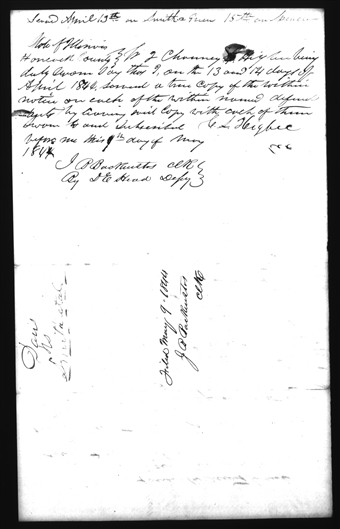 Served April 13th on Smith & Green 15th on
State of Illinois
Hancock County } I Chauncy Higbee being
duly sworn say that I, on the 13 and 14 days of
April 1844, served a true copy of the within
notice on each of the within named defend
ants by leaving said Copy with each of them
Sworn to and subscribed C L Higbee
before me this 9th day of May
1844
J B Backenstos Clk
By D E Head Depy
Filed May 9 1844
J B Backenstos
Clk
vs
Smith et al